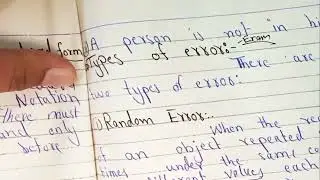 A person is not in hi
form
types of error:- Exam
There are
Notation two types of error:
There must
and only Random Error:-
before When the re
of an object repeated
times under the same co
different values each